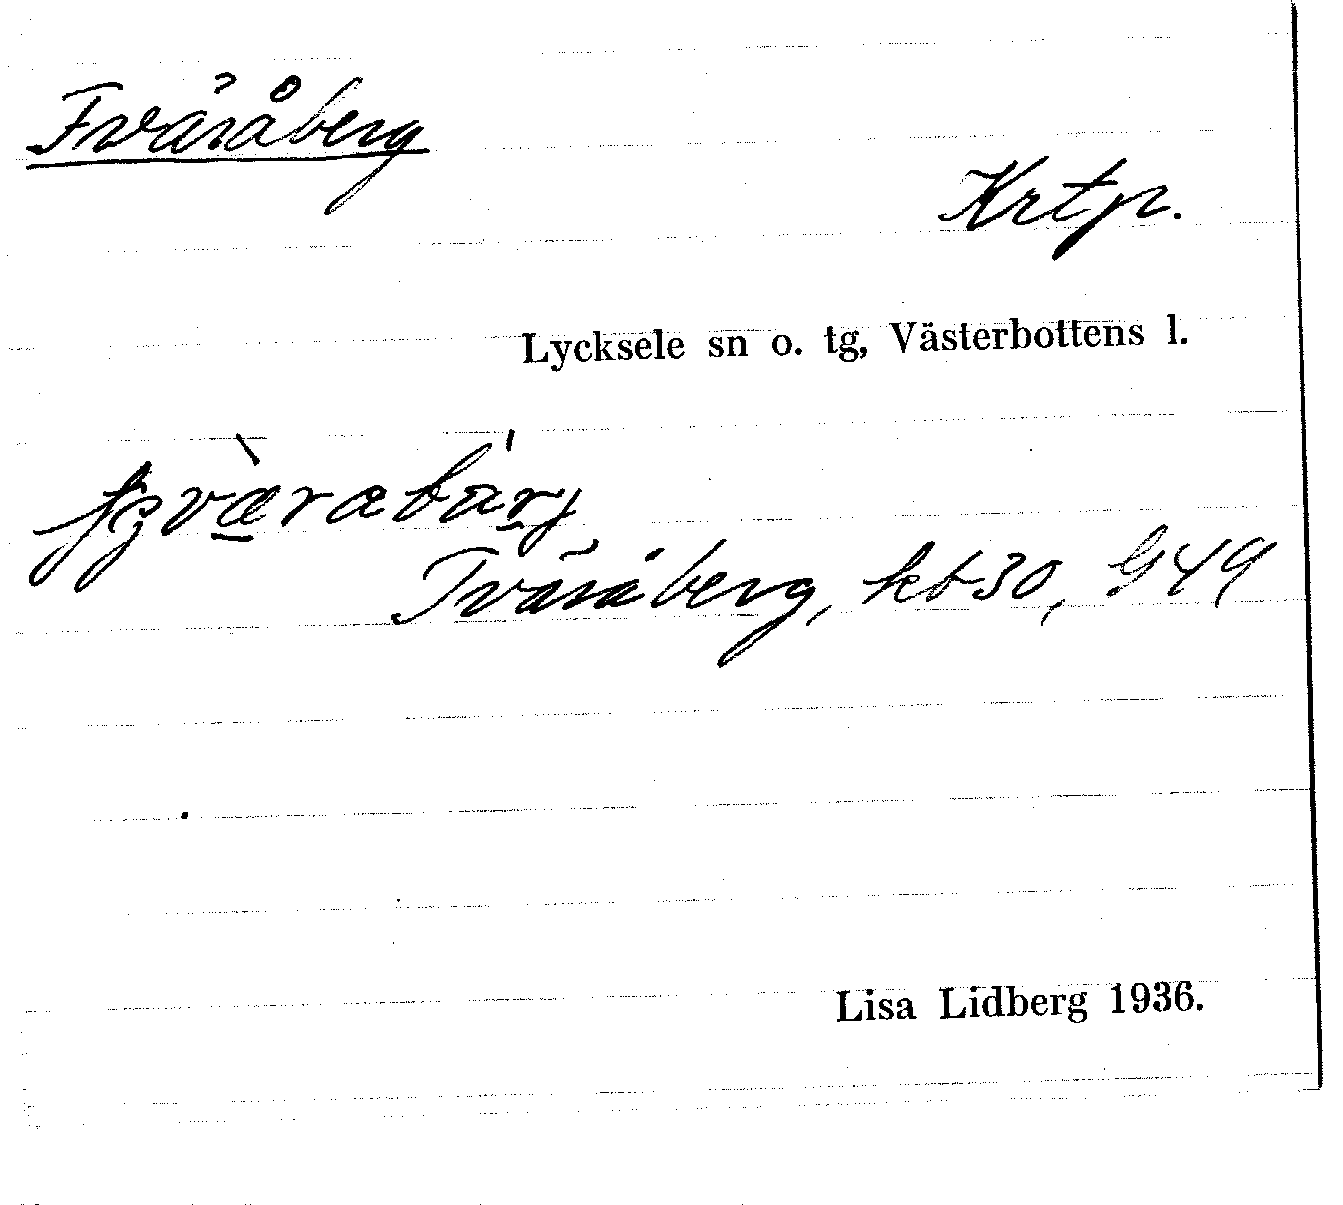 Tväråberg
Krtp.
Lycksele sn o. tg, Västerbottens l.
Tväråberg, kb 30, G 49
Lisa Lidberg 1936.